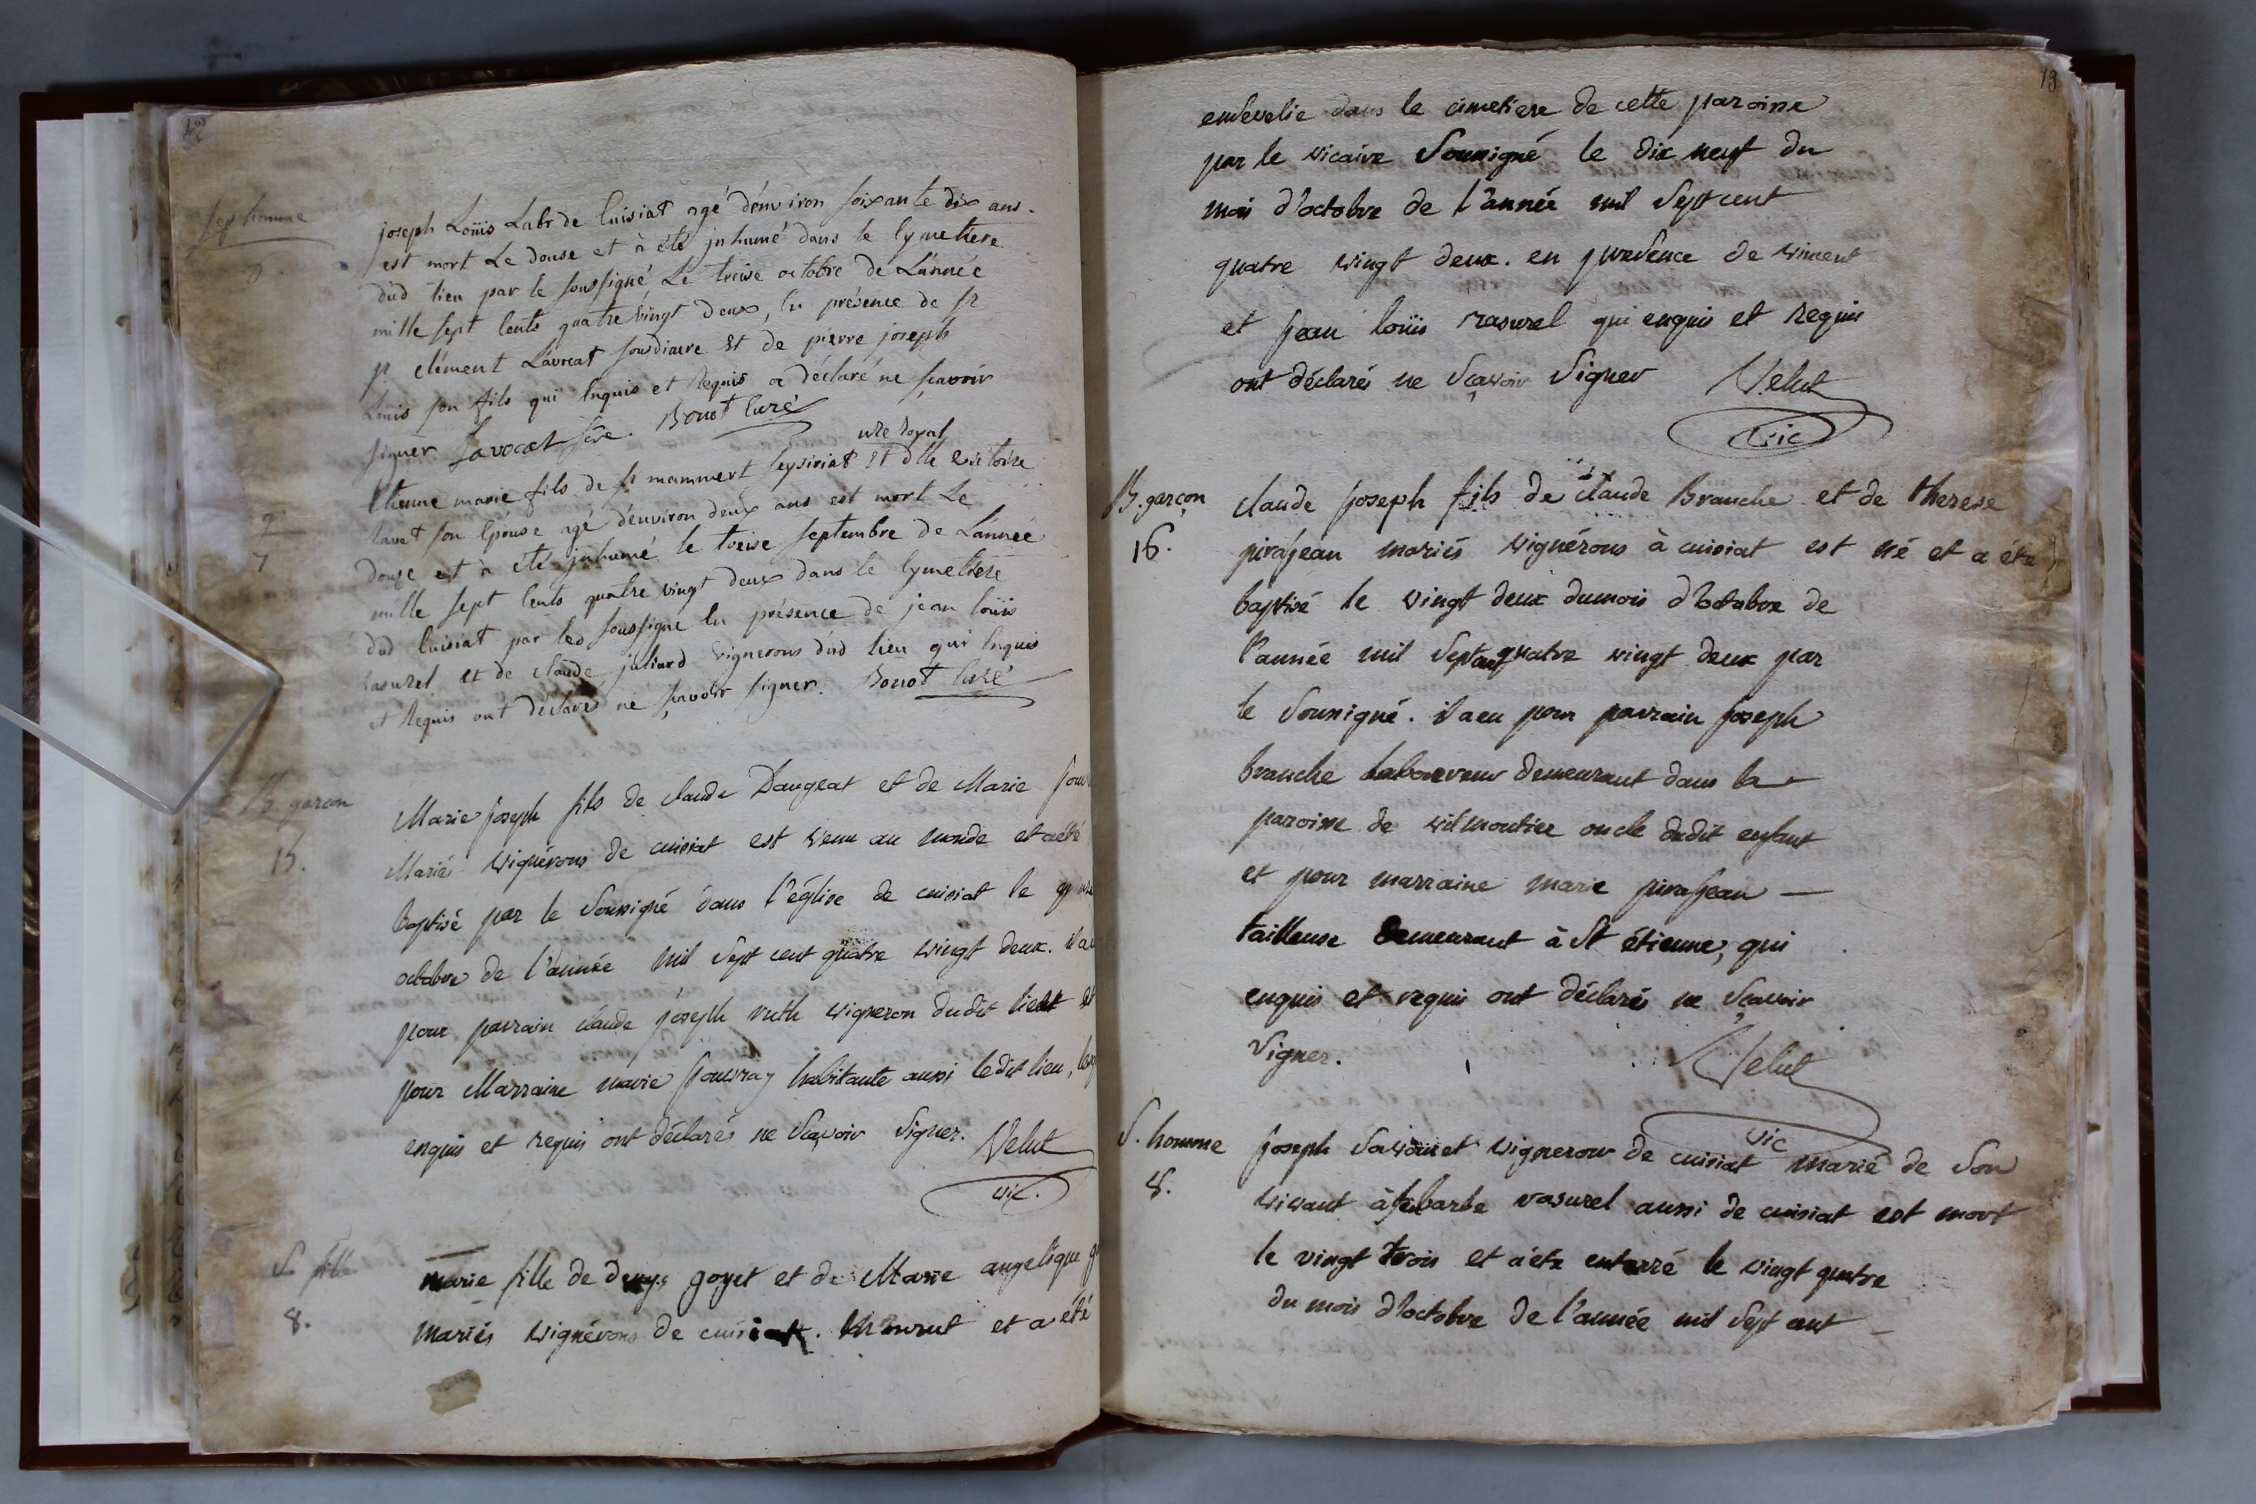 sep homme
joseph Loüis Labr de Cuisiat agé d'environ soixante dix ans.
est mort Le douse et à été jnhumé dans le Cymetiere
dud lieu par le soussigné Le treise octobre de L'année
mille sept Cents quatre vingt deux, En présence de sr
jr clément Lavocat sousdiacre Et de pierre joseph
Loüis son fils qui Enquis et Requis a déclaré ne sçavoir
signer Lavocat Bonot Curé
nre royal
Etienne marie fils de sr mammert Peysiriat Et dlle victoire
son Epouse agé d'environ deux ans est mort Le
7
douze et à été jnhumé le treise septembre de L'année
mille sept Cents quatre vingt deux dans le Cymetiere
dud Cuisiat par les soussigné En présence de jean loüis
rasurel Et de claude juliard vignerons dud lieu qui Enquis
et Requis ont déclarés ne sçavoir signer. Bonot Curé
B. garcon
15.
Marie joseph fils de claude Daugeat et de Marie
Mariés vignérons de cuisiat est venu au monde et a été
baptisé par le Soussigné dans l'église de cuisiat le
octobre de l'année mil Sept cent quatre vingt deux. il a
pour parrain claude joseph ruth vigneron dudit lieu et
pour Marraine marie Pouvray habitante aussi ledit lieu,
enquis et requis ont déclarés ne Sçavoir Signer. Velut
vic.
S. fille
8.
marie fille de denys goyet et de Marie angelique
mariés vignérons de cuisiat. Mourut et a été
19
ensevelie dans le cimetiere de cette paroisse
par le vicaire Soussigné le dix neuf du
mois d'octobre de l'année mil Sept cent
quatre vingt deux. en presence de vincent
et jean loüis rasurel qui enquis et requis
ont déclarés ne Sçavoir Signer Velut
vic
B. garçon
16.
claude joseph fils de claude Branche et de therese
pirajean mariés vignérons à cuisiat est né et a été
baptisé le vingt deux du mois d'octobre de
l'année mil Sept cent quatre vingt deux par
le Soussigné. il a eu pour parrain joseph
branche Laboureur demeurant dans la
paroisse de vilmoutier oncle dudit enfant
et pour marraine marie pirajean
tailleuse demeurant à St étienne, qui
enquis et requis ont déclarés ne Sçavoir
Signer. Velut
vic
S. homme
8.
joseph Savoüinet vigneron de cuisiat marié de Son
vivant à feu barbe rasurel aussi de cuisiat est mort
le vingt trois et a été enterré le vingt quatre
du mois d'octobre de l'année mil Sept cent